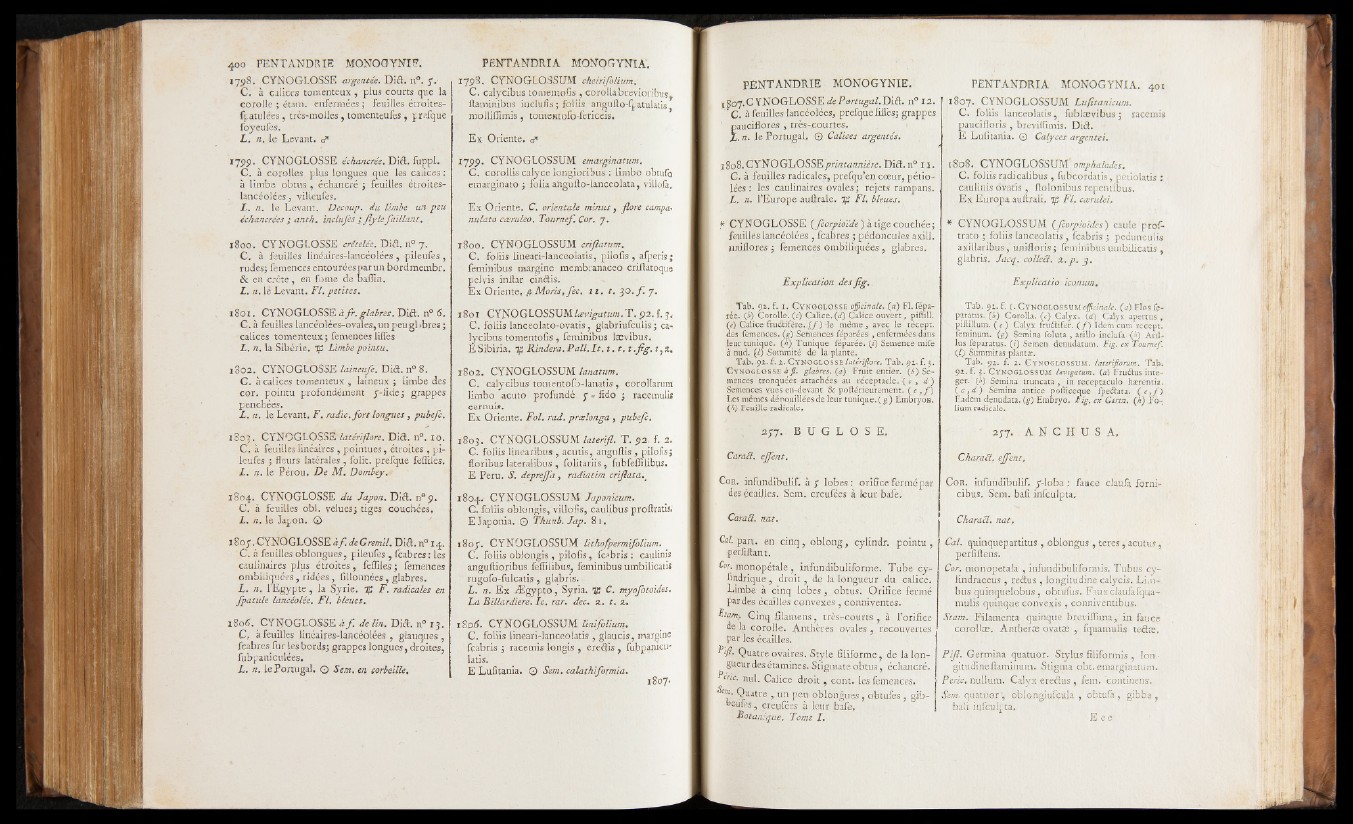 400 PENTANDRIE MONOGYNIE.
1798. CYNOGLOSSE argentée. Dict. n°. 5.
C. à calices tomenteux, plus courts que la
corolle ; étam. enfermées ; feuilles étroites-
spatulées, très-molles, tomenteuses, presque
soyeuses.
L. n. le Levant. ♂
1799. CYNOGLOSSE échancrée. Dict. suppl.
C. à corolles plus longues que les calices :
à limbe obtus, échancré ; feuilles étroites-
lancéolées, villeuses.
L. n. le Levant. Decoup. du limbe un peu
échancrées ; anth. incluses ; style saillant.
1800. CYNOGLOSSE crételée. Dict. n° 7.
C. à feuilles linéaires-lancéolées, pileuses,
rudes; semences entourées par un bord membr.
& en crête, en forme de bassin.
L. n. le Levant. Fl. petites.
1801. CYNOGLOSSE à fr. glabres. Dict. n° 6.
C. à feuilles lancéolées-ovales, un peu glabres ;
calices tomenteux ; semences lisses
L. n. la Sibérie. ♃ Limbe pointu.
1802. CYNOGLOSSE laineuse. Dict. n° 8.
C. à calices tomenteux, laineux ; limbe des
cor. pointu profondément 5-fide ; grappes
penchées.
L. n. le Levant, F. radic. fort longues, pubesc.
1803. CYNOGLOSSE latériflore. Dict. n°. 10.
C. à feuilles linéaires, pointues, étroites, pi-
leuses ; fleurs latérales, solit. presque sessiles.
L. n. le Pérou. De M. Dombey.
1804. CYNOGLOSSE du Japon. Dict. n° 9.
C. à feuilles obl. velues ; tiges couchées.
L. n. le Japon. ☉
1805. CYNOGLOSSE à f. de Gremil. Dict. n° 14.
C. à feuilles oblongues, pileuses, scabres : les
caulinaires plus étroites, sessiles ; semences
ombiliquées, ridées, sillonnées, glabres.
L. n. l'Egypte, la Syrie. ♃ F. radicales en
spatule lancéolée. Fl. bleues.
1806. CYNOGLOSSE à f. de lin. Dict. n° 13.
C. à feuilles linéaires-lancéolées, glauques,
scabres sur les bords; grappes longues, droites,
subpaniculées.
L. n. le Portugal. ☉ Sem. en corbeille.
PENTANDRIA MONOGYNIA.
1798. CYNOGLOSSUM cheirifolium.
C. calycibus tomentosis, corolla brevioribus,
staminibus inclusis ; foliis angusto-spatulatis,
mollissimis, tomentoso-sericeis.
Ex Oriente. ♂
1799. CYNOGLOSSUM emarginatum.
C. corollis calyce longioribus : limbo obtuso
emarginato ; folia angusto-lanceolata, villosa.
Ex Oriente. C. orientale minus, flore campa-
nulato cæruleo. Tournef. Cor. 7.
1800. CYNOGLOSSUM cristatum.
C. foliis lineari-lanceolatis, pilosis, asperis ;
seminibus margine membranaceo cristatoque
pelvis instar cinctis.
Ex Oriente, β Moris, sec. 11. t. 30. f. 7.
1801 CYNOGLOSSUM lævigatum. T. 92. f. 3.
C. foliis lanceolato-ovatis, glabriusculis ; ca-
lycibus tomentosis, seminibus lævibus.
E Sibiria. ♃ Rindera. Pall. It. 1. t. 1. fig. 1, 2.
1802. CYNOGLOSSUM lanatum.
C. calycibus tomentoso-lanatis, corollarum
limbo acuto profundè 5-fido ; racemulis
cernuis.
Ex Oriente. Fol. rad. prælonga, pubesc.
1803. CYNOGLOSSUM laterifl. T. 92. f. 2.
C. foliis linearibus, acutis, angustis, pilosis ;
floribus lateralibus, solitariis, subsessilibus.
E Peru. S. depressa, radiatim cristata.
1804. CYNOGLOSSUM Japonicum.
C. foliis oblongis, villosis, caulibus prostratis.
E Japonia. ☉ Thunb. Jap. 81.
1805. CYNOGLOSSUM lithospermifolium.
C. foliis oblongis, pilosis, scabris : caulinis
angustioribus sessilibus, seminibus umbilicatis
rugoso-sulcatis, glabris.
L. n. Ex Ægypto, Syria. ♃ C. myosotoides.
La Billardiere. Ic. rar. dec. 2. t. 2.
1806. CYNOGLOSSUM linifolium.
C. foliis lineari-lanceolatis, glaucis, margine
scabris ; racemis longis, erectis, subpanicu-
latis.
E Lusitania. ☉ Sem. calathiformia.
1807.
PENTANDRIE MONOGYNIE.
1807. CYNOGLOSSE de Portugal. Dict. n° 12.
C. à feuilles lancéolées, presque lisses; grappes
pauciflores, très-courtes.
L. n. le Portugal. ☉ Calices argentés.
1808. CYNOGLOSSE printannière. Dict. n° 11.
C. à feuilles radicales, presqu'en cœur, pétio-
lées : les caulinaires ovales ; rejets rampans.
L. n. l'Europe australe. ♃ Fl. bleues.
* CYNOGLOSSE (scorpioïde) à tige couchée ;
feuilles lancéolées, scabres ; pédoncules axill.
uniflores ; semences ombiliquées, glabres.
Explication des fig.
Tab. 92. f. 1. CYNOGLOSSE officinale. (a) Fl. sépa-
rée. (b) Corolle. (c) Calice. (d) Calice ouvert, pistill.
(e) Calice fructifère. (f) le même, avec le récept.
des semences. (g) Semences séparées, enfermées dans
leur tunique. (h) Tunique séparée. (i) Semence mise
à nud. (l) Sommité de la plante.
Tab. 92. f. 2. CYNOGLOSSE latériflore. Tab. 92. f. 3.
CYNOGLOSSE à fl. glabres. (a) Fruit entier. (b) Se-
mences tronquées attachées au réceptacle. (c, d)
Semences vues en-devant & postérieurement. (e, f)
Les mêmes dépouillées de leur tunique. (g) Embryon.
(h) Feuille radicale.
257. BUGLOSE.
Caract. essent.
COR. infundibulif. à 5 lobes : orifice fermé par
des écailles. Sem. creusées à leur base.
Caract. nat.
Cal. part. en cinq, oblong, cylindr. pointu,
persistant.
Cor. monopétale, infundibuliforme. Tube cy-
lindrique, droit, de la longueur du calice.
Limbe à cinq lobes, obtus. Orifice fermé
par des écailles convexes, conniventes.
Etam. Cinq filamens, très-courts, à l'orifice
de la corolle. Anthères ovales, recouvertes
par les écailles.
Pist. Quatre ovaires. Style filiforme, de la lon-
gueur des étamines. Stigmate obtus, échancré.
Peric. nul. Calice droit, cont. les semences.
Sem. Quatre, un peu oblongues, obtuses, gib-
beuses, creusées à leur base.
Botanique. Tome I.
PENTANDRIA MONOGYNIA. 401
1807. CYNOGLOSSUM Lusitanicum.
C. foliis lanceolatis, sublævibus ; racemis
paucifloris, brevissimis. Dict.
E Lusitania. ☉ Calyces argentei.
1808. CYNOGLOSSUM omphalodes.
C. foliis radicalibus, subcordatis, petiolatis :
caulinis ovatis, stolonibus repentibus.
Ex Europa australi. ♃ Fl. cærulei.
* CYNOGLOSSUM (scorpioides) caule pros-
trato ; foliis lanceolatis, scabris ; pedunculis
axillaribus, unifloris ; seminibus umbilicatis,
glabris. Jacq. collect. 2. p. 3.
Explicatio iconum.
Tab. 92. f. 1. CYNOGLOSSUM officinale. (a) Flos se-
paratus. (b) Corolla. (c) Calyx. (d) Calyx apertus,
pistillum. (e) Calyx fructifer. (f) Idem cum recept.
seminum. (g) Semina soluta, arillo inclusa. (h) Aril-
lus separatus. (i) Semen denudatum. Fig. ex Tournef.
(l) Summitas plantæ.
Tab. 92. f. 2. CYNOGLOSSUM. lateriflorum. Tab.
92. f. 3. CYNOGLOSSUM lævigatum. (a) Fructus inte-
ger. (b) Semina truncata, in receptaculo hærentia.
(c, d) Semina antice posticeque spectata. (e, f)
Eadem denudata. (g) Embryo. Fig. ex Gærtn. (h) Fo-
lium radicale.
257. ANCHUSA.
Charact. essent.
COR. infundibulif. 5-loba : fauce clausa forni-
cibus. Sem. basi insculpta.
Charact. nat.
Cal. quinquepartitus, oblongus, teres, acutus,
persistens.
Cor. monopetala, infundibuliformis. Tubus cy-
lindraceus, rectus, longitudine calycis. Lim-
bus quinquelobus, obtusus. Faux clausa squa-
mulis quinque convexis, conniventibus.
Stam. Filamenta quinque brevissima, in fauce
corollæ. Antheræ ovatæ, squamulis tectæ.
Pist. Germina quatuor. Stylus filiformis, lon-
gitudine staminum. Stigma obt. emarginatum.
Peric. nullum. Calyx erectus, sem. continens.
Sem. quatuor, oblongiuscula, obtusa, gibba,
basi insculpta.
E e e